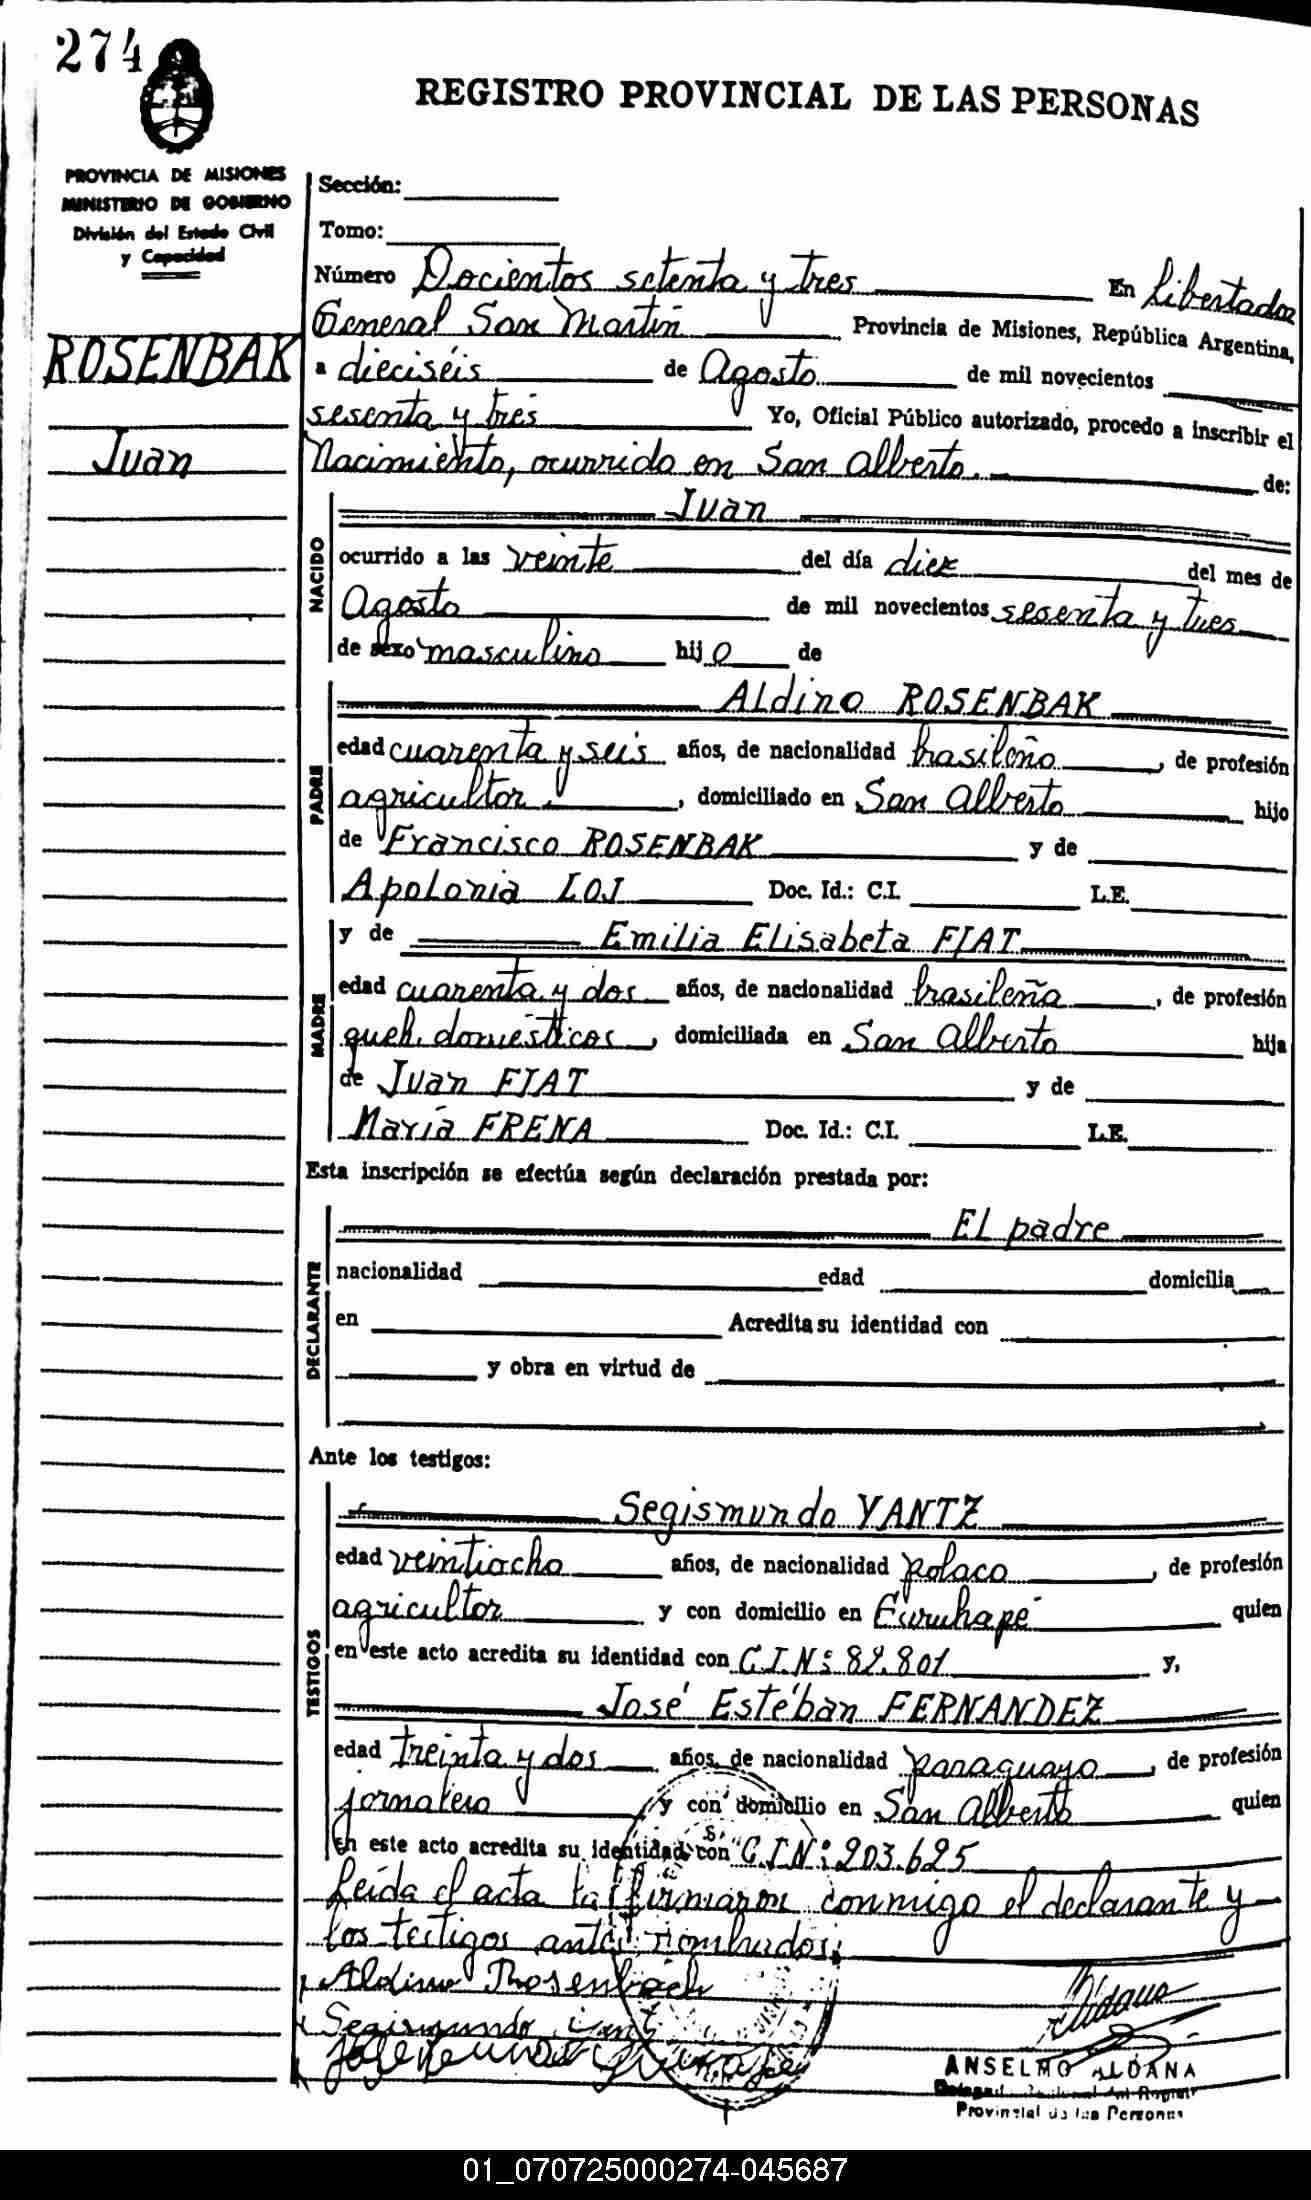 274
REGISTRO PROVINCIAL DE LAS PERSONAS
PROVINCIA DE MISIONES
MINISTERIO DE GOBIERNO
División del Estado Civil
y Capacidad
ROSENBAK
Juan
Sección:
Tomo:
Número Docientos setenta y tres En Libertador
General San Martín Provincia de Misiones, República Argentina,
a dieciséis de Agosto de mil novecientos
sesenta y tres Yo, Oficial Público autorizado, procedo a inscribir el
Nacimiento, ocurrido en San Alberto. de:
NACIDO
Juan
ocurrido a las veinte del día diez del mes de
Agosto de mil novecientos sesenta y tres
de sexo masculino hijo de
PADRE
Aldino ROSENBAK
edad cuarenta y seis años, de nacionalidad brasileño, de profesión
agricultor, domiciliado en San Alberto hijo
de Francisco ROSENBAK y de
Apolonia LOJ Doc. Id.: C.I. L.E.
MADRE
y de Emilia Elisabeta FIAT
edad cuarenta y dos años, de nacionalidad brasileña, de profesión
queh. domésticos, domiciliada en San Alberto hija
de Juan FIAT y de
María FRENA Doc. Id.: C.I. L.E.
Esta inscripción se efectúa según declaración prestada por:
DECLARANTE
El padre
nacionalidad edad domicilia
en Acredita su identidad con
y obra en virtud de
Ante los testigos:
TESTIGOS
Segismundo YANTZ
edad veintiocho años, de nacionalidad polaco, de profesión
agricultor y con domicilio en quien
en este acto acredita su identidad con C.I.Nº 82.801 y,
José Estéban FERNANDEZ
edad treinta y dos años, de nacionalidad paraguayo, de profesión
jornalero y con domicilio en San Alberto quien
en este acto acredita su identidad con C.I.N: 203.625
Leída el acta la firmaron conmigo el declarante y
los testigos antes nombrados.
Aldino Rosenbach
Segismundo
ANSELMO ALDANA
Provincial de las Personas
01_070725000274-045687